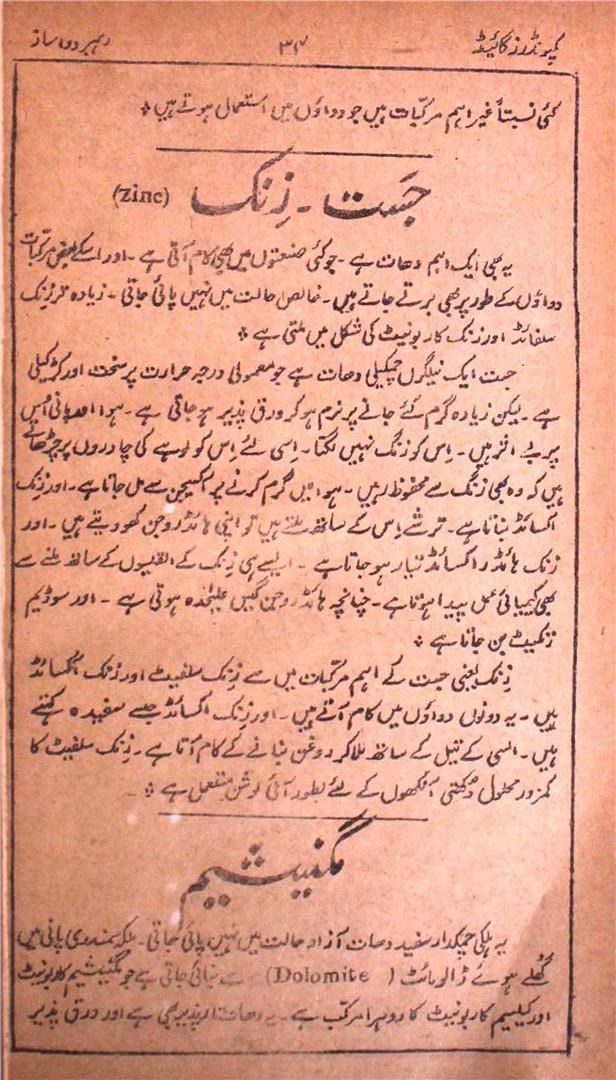 کمپونڈرز گائیڈ
۳۴
رہبر دوا ساز
کئی نسبتاً غیر اہم مرکبات ہیں جو دواؤں میں استعمال ہوتے ہیں *
جَست ۔ زِنک (zinc)
یہ بھی ایک اہم دھات ہے ۔ جو کئی صنعتوں میں بھی کام آتی ہے ۔ اور اسکے بعض مرکبات
دواؤں کے طور پر بھی برتے جاتے ہیں ۔ خالص حالت میں نہیں پائی جاتی ۔ زیادہ تر زنک
سلفائڈ اور زنک کاربونیٹ کی شکل میں ملتی ہے *
جست ایک نیلگوں چمکیلی دھات ہے جو معمولی درجہ حرارت پر سخت اور کڑکیلی
ہے ۔ لیکن زیادہ گرم کئے جانے پر نرم ہو کر ورق پذیر ہو جاتی ہے ۔ ہوا اور پانی اُس
پر بے اثر ہیں ۔ اِس کو زنگ نہیں لگتا ۔ اِسی لئے اِس کو لوہے کی چادروں پر چڑھاتے
ہیں کہ وہ بھی زنگ سے محفوظ رہیں ۔ ہوا میں گرم کرنے پر اکسیجن سے مل جاتا ہے ۔ اور زنک
اکسائڈ بناتا ہے ۔ ترشے اِس کے ساتھ ملتے ہیں تو اپنی ہائڈروجن کھو دیتے ہیں ۔ اور
زنک ہائڈر اکسائڈ تیار ہو جاتا ہے ۔ ایسے ہی زنک کے القلیوں کے ساتھ ملنے سے
بھی کیمیائی عمل پیدا ہوتا ہے ۔ چنانچہ ہائڈروجن گیس علیٰحدہ ہوتی ہے ۔ اور سوڈیم
زنکیٹ بن جاتا ہے *
زِنک یعنی جست کے اہم مرکبات میں سے زِنک سلفیٹ اور زنک اکسائڈ
ہیں ۔ یہ دونوں دواؤں میں کام آتے ہیں ۔ اور زنک اکسائڈ جسے سفیدہ کہتے
ہیں ۔ السی کے تیل کے ساتھ ملا کر روغن بنانے کے کام آتا ہے ۔ زِنک سلفیٹ کا
کمزور محلول دُکھتی آنکھوں کے لئے بطور آئی لوشن مستعمل ہے *
مگنیشیم
یہ ہلکی چمکدار سفید دھات آزاد حالت میں نہیں پائی جاتی ۔ بلکہ سمندری پانی میں
گھلے ہوئے ڈالومائٹ (Dolomite) سے بنائی جاتی ہے جو مگنیشیم کاربونیٹ
اور کیلسیم کاربونیٹ کا دوہرا مرکب ہے ۔ یہ دھات تار پذیر بھی ہے اور ورق پذیر